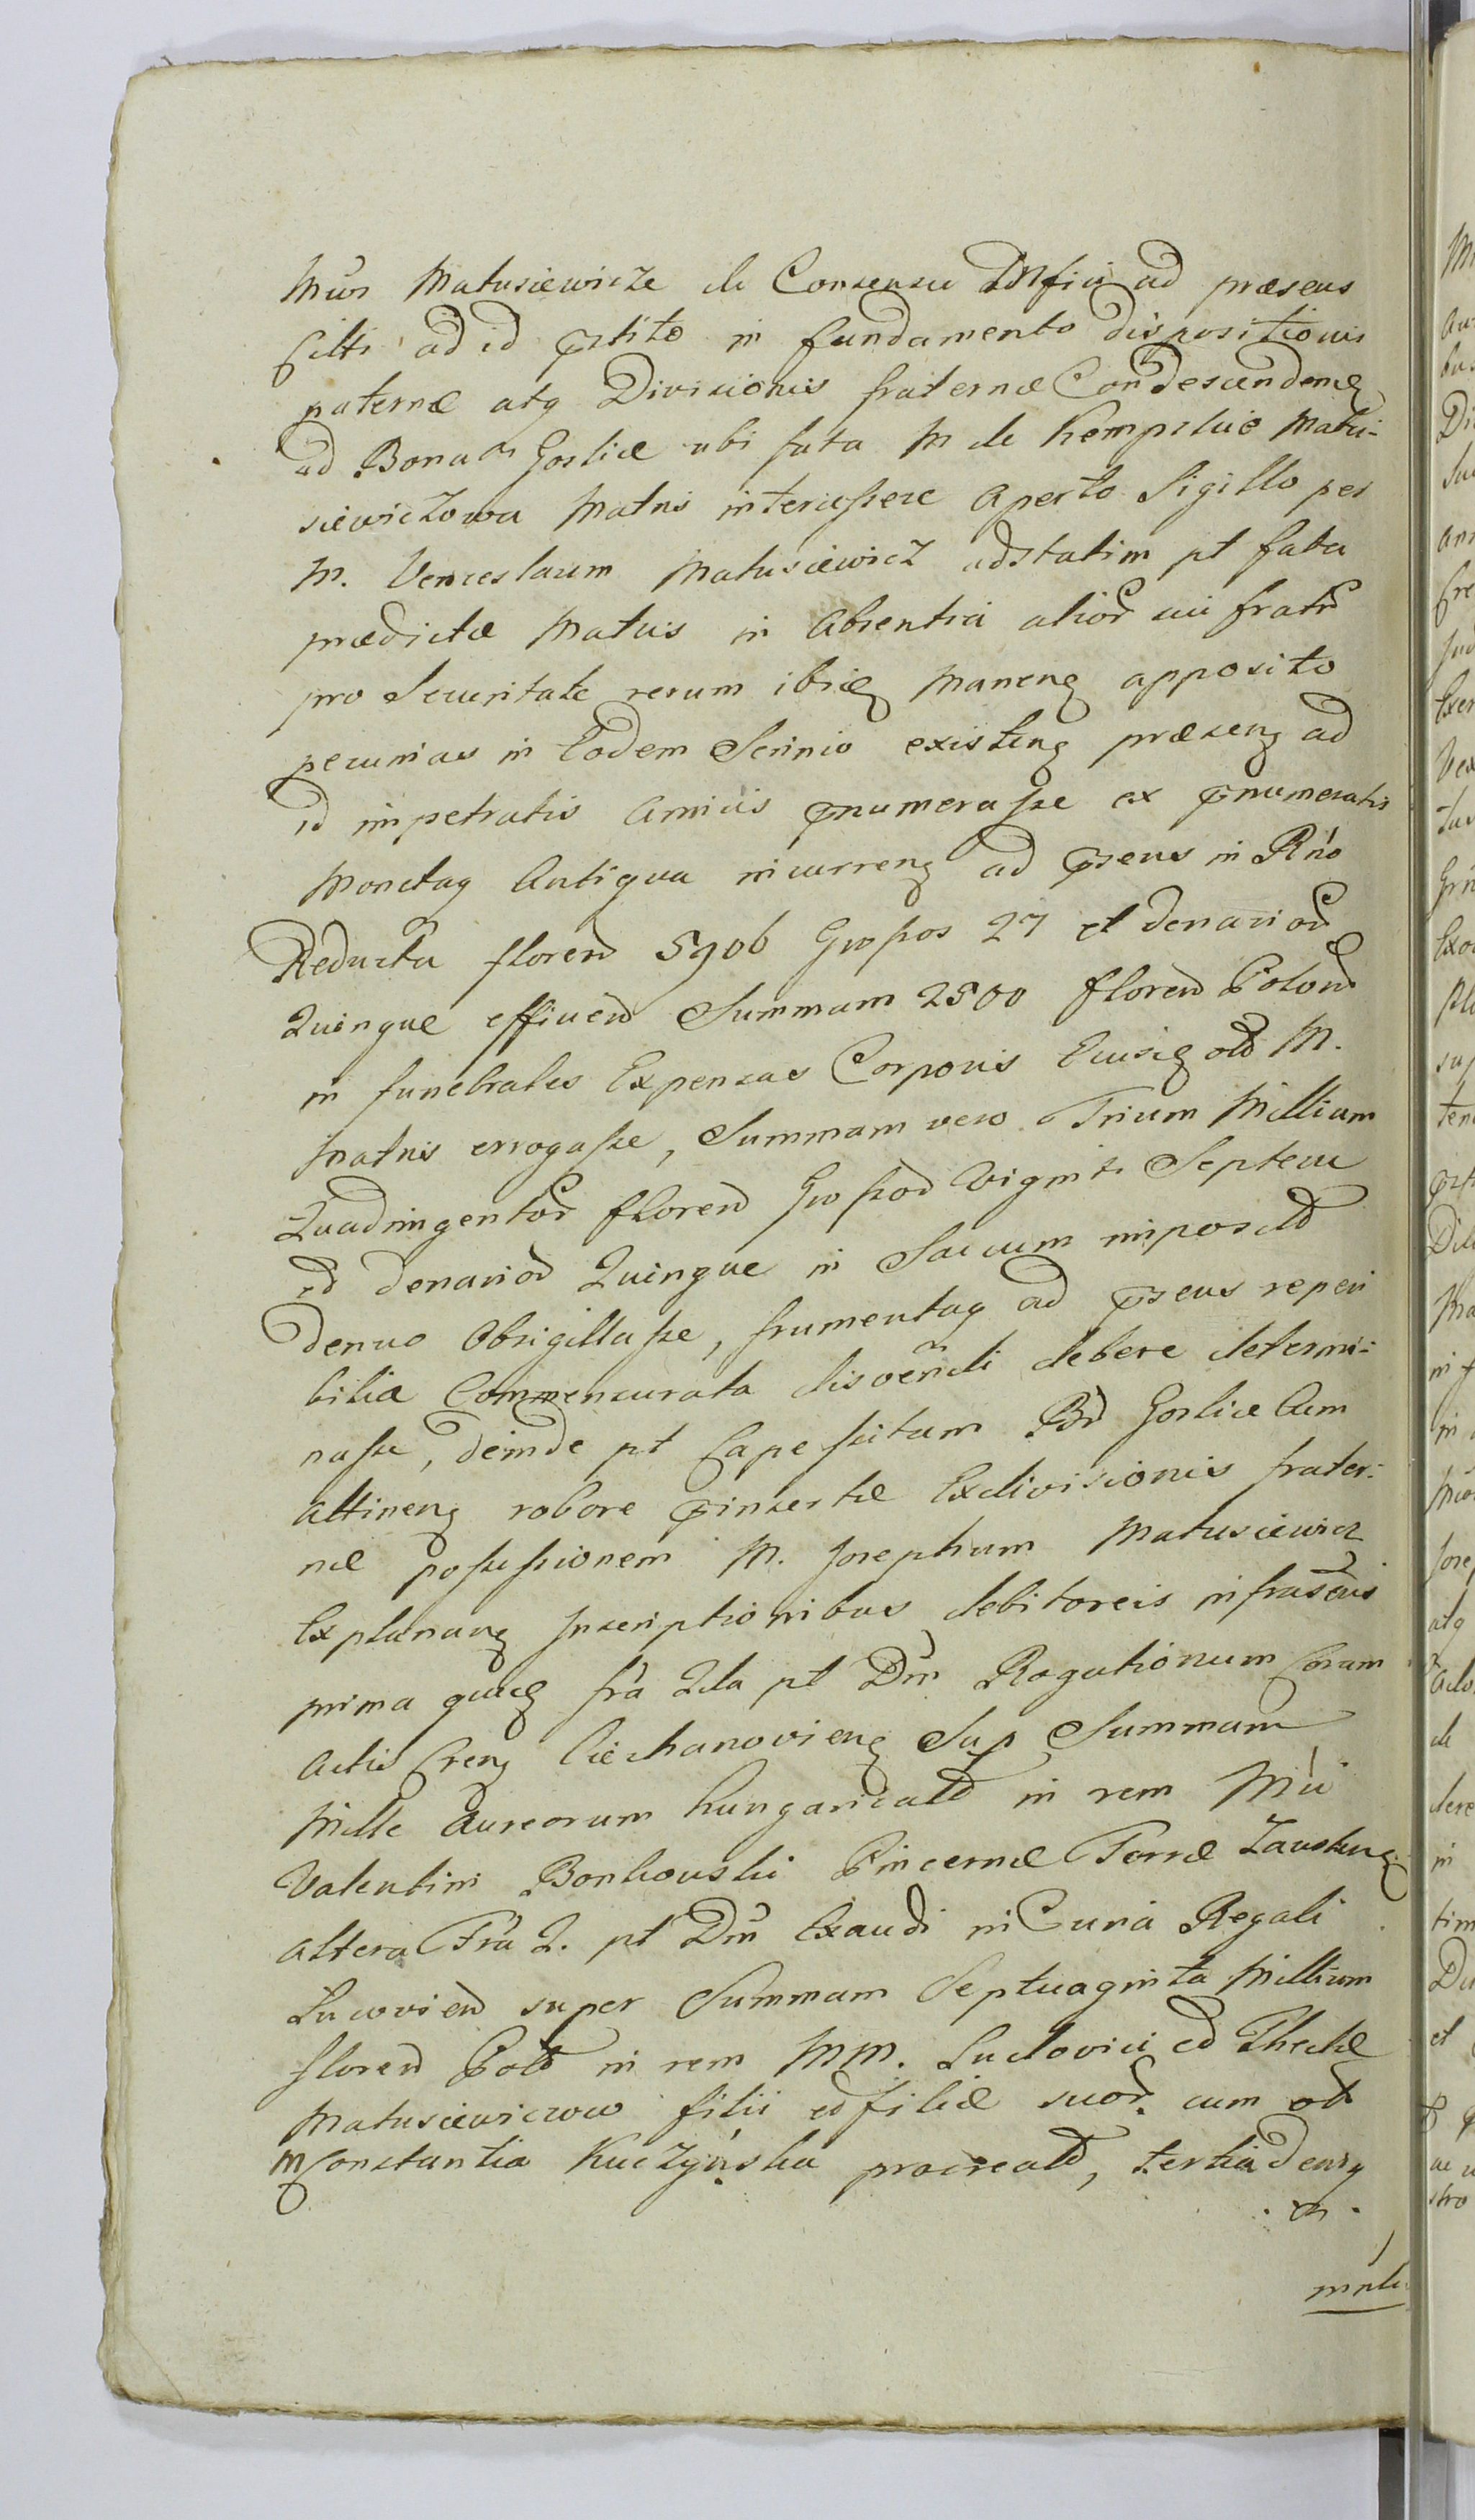 Mu̇s Matusiewicze de Consensu Offici ad præsens
filti ad id pstito in fundamento dispositionis
paternæ atq Divisionis fraternæ Condescendenę
ad Bona Goslice ubi fata M de Kempskie Matu-
siewiczowa Matris intercessere aperto Sigillo per
M. Venceslaum Matusiewicz adstatim pt fata
prædictæ Matris in absentia alior sui fratr
pro Securitate rerum ibię Manenę apposito
pecunias in Eodem Scrinio existenę præsenę ad
id impetratis Amicis pnumerasse ex pnumeratis
Monetaq Antiqua incurrenę ad psens in Rno
Reducta floren 5906 Grossos 27 et denarior
Quinque efficien Summam 2500 floren Polon
in funebrales Expensas Corporis Eiusię ol M.
Matris errogasse, Summam vero Trium Millium
Quadringentor floren Grossor Viginti Septem
et denarior Quinque in Saccum imposit
denuo Obsigillasse, frumentaq ad psens reperi
bilia Commensurata disvendi debere determi-
nasse, deinde pt Capessitam Br Goslice Cum
attinenę robore pinsertæ Exdivisionis frater-
næ possessionem M. Josephum Matusiewicz
Explananę Inscriptionibus debitoreis infrascris
prima quię fra 2da pt Dm Rogationum Coram
actis Crenę Ciechanovienę Sup Summam
Mille Aureorum hungarical in rem Mci
Valentini Bonkowski Pincernæ Terræ Zawskenę
altera Fra 2. pt Dm Exaudi in Curia Regali
Lucovien super Summam Septuaginta Millium
floren Pol in rem MM. Ludovici et Theclæ
Matusiewiczow filii et filiæ suor cum ol
M Constantia Kuczyńska procreat, tertia denę
mnle